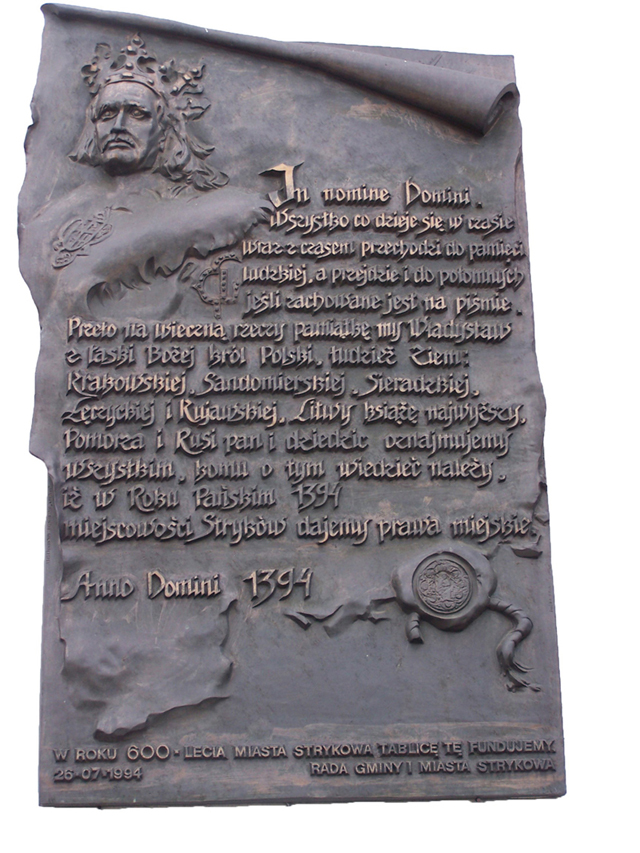 In nomine Domini.
Wszystko co dzieje się w czasie
wraz z czasem przechodzi do pamięci
ludzkiej, a przejdzie i do potomnych
jeśli zachowane jest na piśmie.
Przeto na wieczną rzeczy pamiątkę my Władysław
z łaski Bożej król Polski, tudzież Ziem:
Krakowskiej, Sandomierskiej, Sieradzkiej,
Łęczyckiej i Kujawskiej, Litwy książę najwyższy,
Pomorza i Rusi pan i dziedzic oznajmujemy
wszystkim, komu o tym wiedzieć należy,
iż w Roku Pańskim 1394
miejscowości Stryków dajemy prawa miejskie.
Anno Domini 1394
W ROKU 600-LECIA MIASTA STRYKOWA TABLICĘ TĘ FUNDUJEMY
26-07-1994 RADA GMINY I MIASTA STRYKOWA